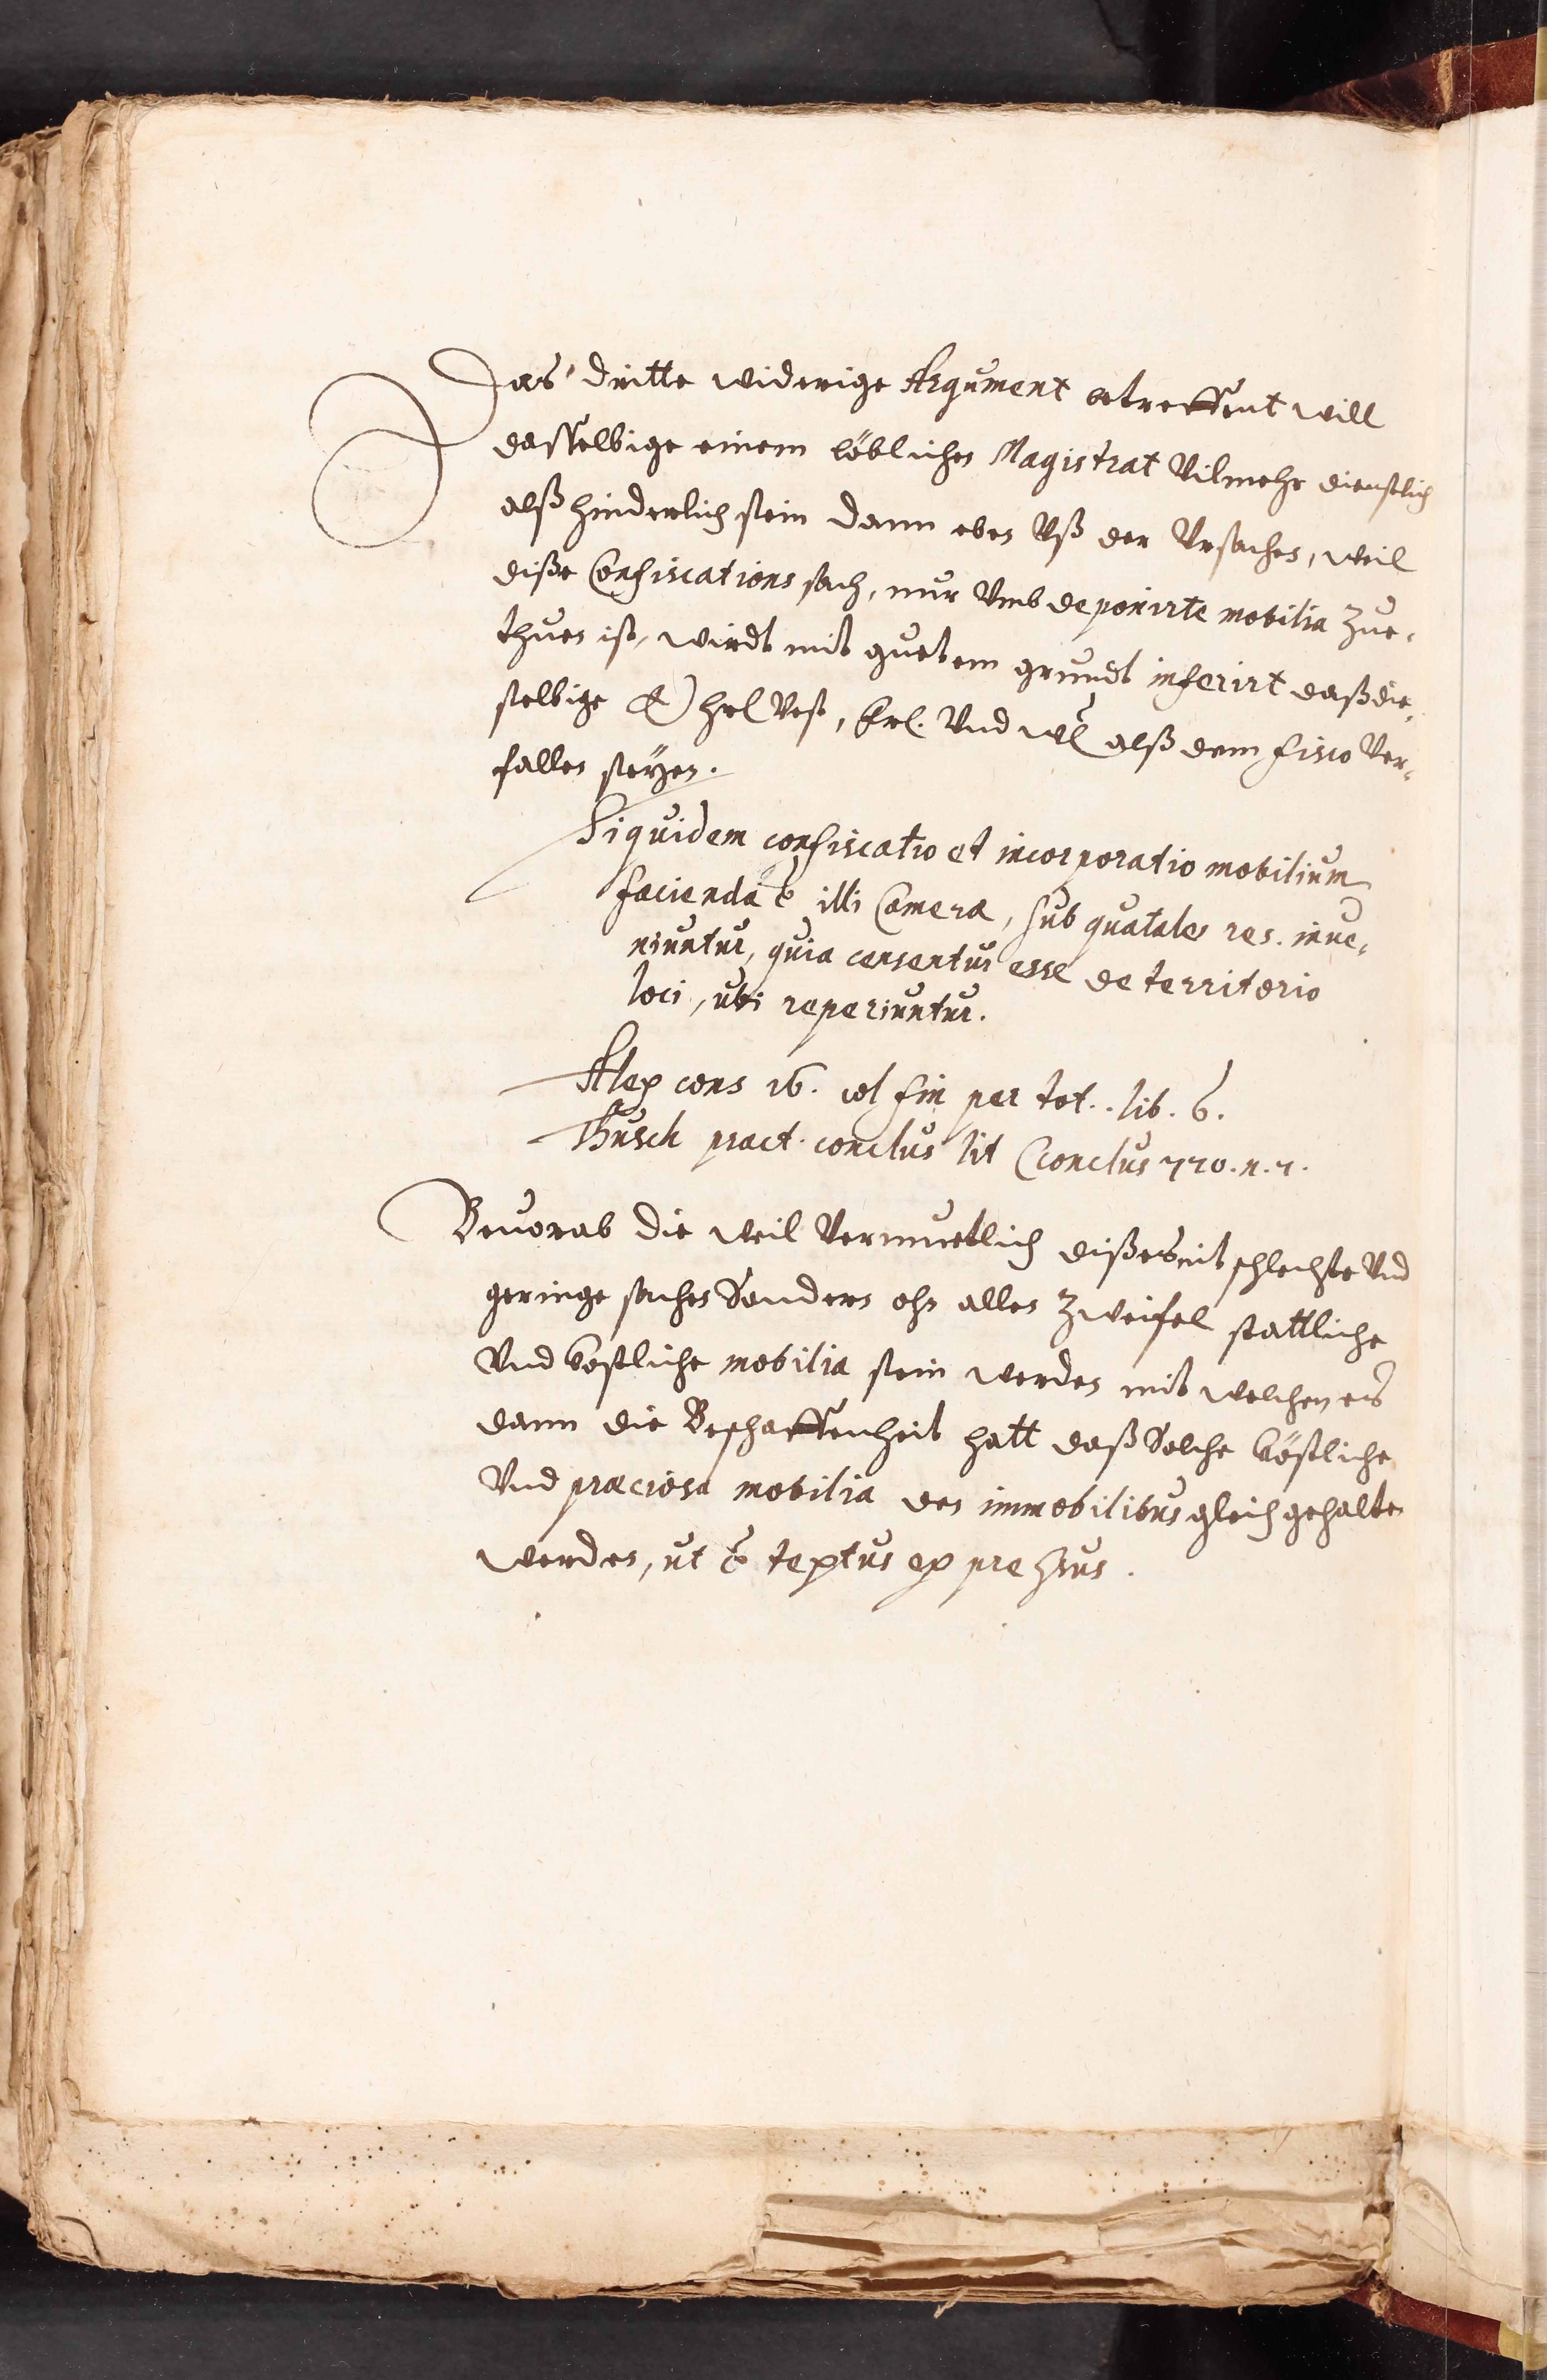 Das dritte widerige Argument atreffent will
dasselbige einem löblichen Magistrat Vilmehr dienstlich
alß hinderlich sein dann eben Vß der Vrsachen, weil
diße Confiscations sach, nur Vmb deponirte mobilia zue¬
thuen ist, wirdt mit guetem grundt inferirt daß die¬
selbige E hrl Vest, Frl. Vnd Wl alß dem fisco Ver¬
fallen seyen.
Siquidem confiscatio et incorporatio mobilium
facienda ē illi Camera, sub qua tales res. inue¬
niuntur, quia censentur esse de territorio
loci, ubi reperiuntur.
Alex cons 16. col fin per tot.. lib. 6.
Thusch pract. conclus lit C conclus 770. n. 7.
Beuorab die weil Vermuetlich dißes nit schlechte Vnd
geringe sachen Sonders ohn allen Zweifel stattliche
Vnd kostliche mobilia sein werden mit welchen es
dann die Beschaffenheit hatt daß Solche köstliche
Vnd praeciosa mobilia den immobilibus gleich gehalten
werden, ut ē textus expressus.